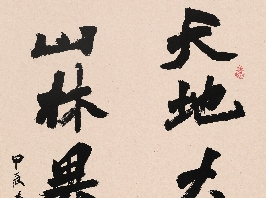 天地大
山林異
甲辰